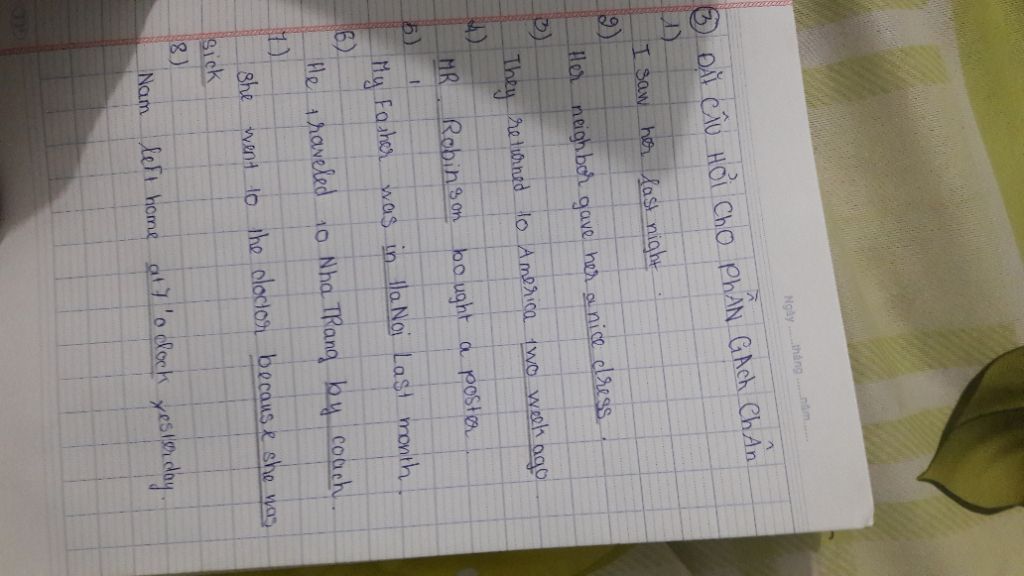 Ngày ......tháng ......năm......
③ ĐẶT CÂU HỎI CHO PHẦN GẠCH CHÂN
1)
I saw her last night.
2)
Her neighbor gave her a nice dress.
3)
They returned to America two week ago.
4)
MR. Robinson bought a poster.
5)
My Father was in HaNoi Last month.
6)
He traveled to Nha TRang by coach.
7)
she went to the doctor because she was
sick
8)
Nam left home at 7'o clock yesterday.